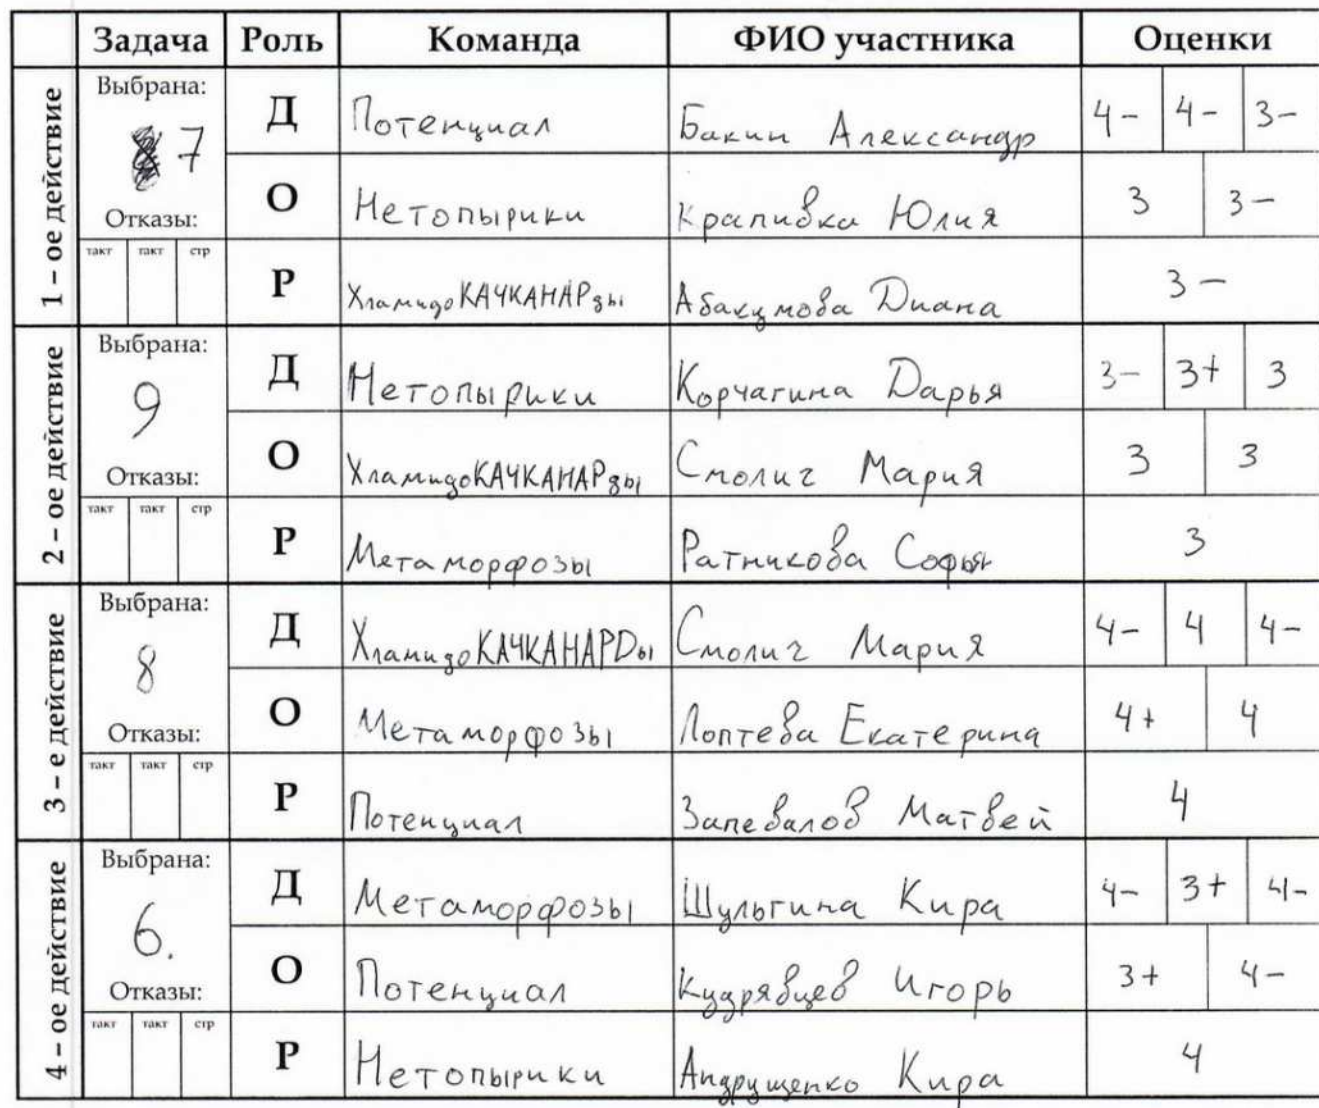 Задача Роль Команда ФИО участника Оценки
1 – ое действие
Выбрана:
7
Отказы:
такт такт стр
Д Потенциал Бакин Александр 4- 4- 3-
О Нетопырики Крапивка Юлия 3 3-
Р ХламидоКАЧКАНАРды Абакумова Диана 3-
2 – ое действие
Выбрана:
9
Отказы:
такт такт стр
Д Нетопырики Корчагина Дарья 3- 3+ 3
О ХламидоКАЧКАНАРды Смолич Мария 3 3
Р Метаморфозы Ратникова Софья 3
3 – е действие
Выбрана:
8
Отказы:
такт такт стр
Д ХламидоКАЧКАНАРDы Смолич Мария 4- 4 4-
О Метаморфозы Лоптева Екатерина 4+ 4
Р Потенциал Запевалов Матвей 4
4 – ое действие
Выбрана:
6.
Отказы:
такт такт стр
Д Метаморфозы Шульгина Кира 4- 3+ 4-
О Потенциал Кудрявцев Игорь 3+ 4-
Р Нетопырики Андрущенко Кира 4